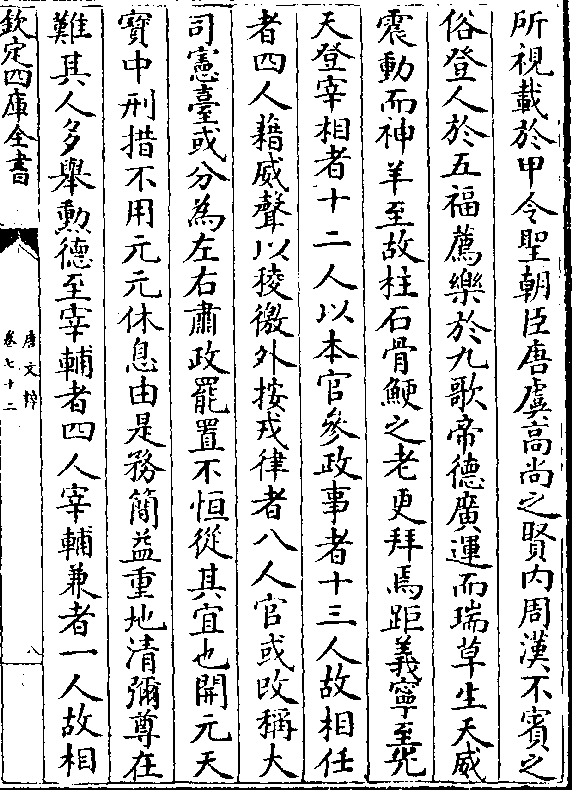 所視載於甲令聖朝臣唐虞高尚之賢内周漢不賓之
俗登人於五福薦樂於九歌帝德廣運而瑞草生天威
震動而神羊至故柱石骨鯁之老更拜焉距義寧至先
天登宰相者十二人以本官參政事者十三人故相任
者四人藉威聲以稜徼外按戎律者八人官或改稱大
司憲臺或分為左右肅政罷置不恒從其宜也開元天
寶中刑措不用元元休息由是務簡益重地清彌尊在
難其人多舉勲德至宰輔者四人宰輔兼者一人故相
欽定四庫全書
唐文粹
卷七十二
八